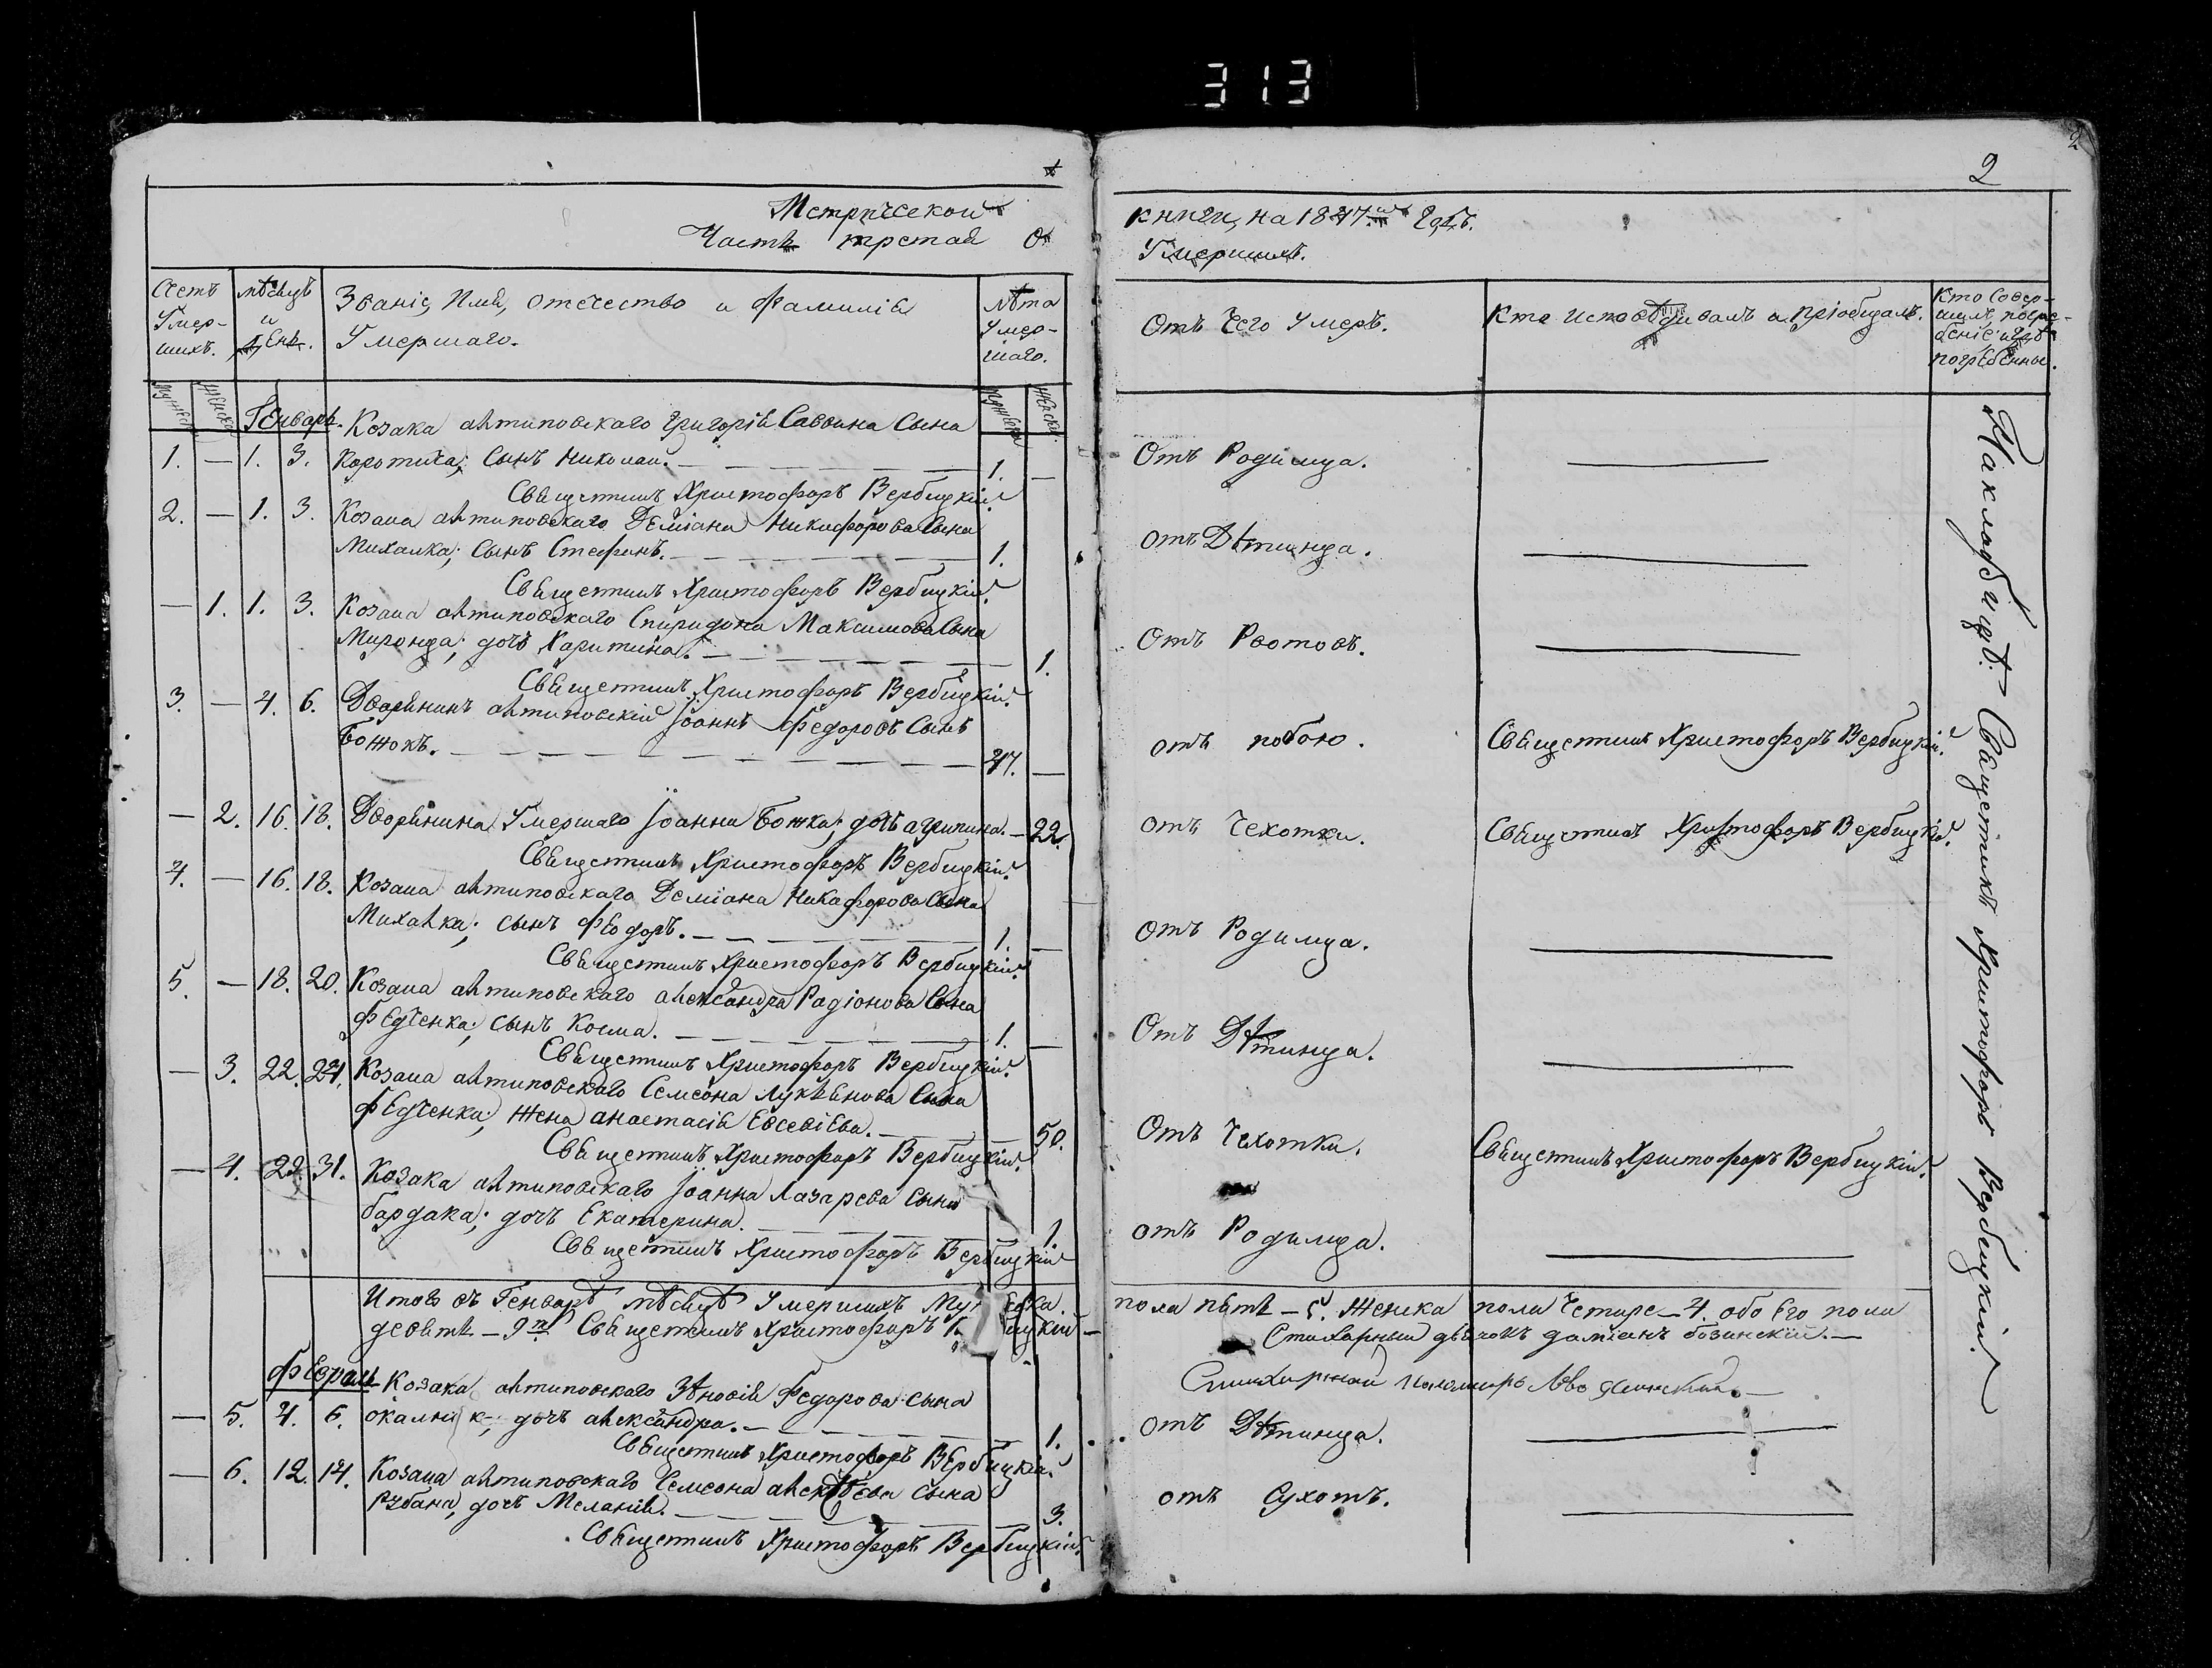 313
2
2
Метрической
Часть третая О
книги, на 1847й Годъ.
Умершихъ.
Счетъ Умер-шихъ.
Мѣсяцъ и День.
Званіе, Имя, отечество и фамилія Умершаго.
Лѣта Умер-шаго.
Отъ Чего Умеръ.
Кто исповѣдивалъ и пріобщалъ.
Кто Совер-шилъ погре-беніе и гдѣ погребенны.
Генварь.
Козака антиповскаго Григорія Саввина Сына
1. — 1. 3. Коротиха; Сынъ Николай. — 1. —
Отъ Родимца. —
Священникъ Христофоръ Вербицкій.
2. — 1. 3. Козака антиповскаго Деміана Никифорова Сына
Михалка; Сынъ Стефанъ. — 1.
отъ Дѣтинца. —
Священникъ Христофоръ Вербицкій.
— 1. 1. 3. Козака антиповскаго Спиридона Максимова Сына
Миронца; дочь Харитина. — 1.
Отъ Рвотовъ. —
Священникъ Христофоръ Вербицкій.
3. — 4. 6. Дворянинъ антиповскій Іоаннъ Федоровъ Сынъ
Божокъ. — 47. —
отъ побою. Священникъ Христофоръ Вербицкій.
— 2. 16. 18. Дворянина Умершаго Іоанна Божка; дочь агрипина. — 22.
отъ Чехотки. Священникъ Христофоръ Вербицкій.
Священникъ Христофоръ Вербицкій.
4. — 16. 18. Козака антиповскаго Деміана Никифорова Сына
Михалка; сынъ Феодоръ. — 1. —
отъ Родимца. —
Священникъ Христофоръ Вербицкій.
5. — 18. 20. Козака антиповскаго александра Радіонова Сына
Федченка; сынъ Косма. — 1. —
Отъ Дѣтинца. —
Священникъ Христофоръ Вербицкій.
— 3. 22. 24. Козака антиповскаго Семеона Лукіянова Сына
Федченка; Жена анастасія Евсевіева. — 50.
Отъ Чехотки. Священникъ Христофоръ Вербицкій.
Священникъ Христофоръ Вербицкій.
— 4. 29. 31. Козака антиповскаго Іоанна Лазарева Сына
бардака; дочь Екатерина. — 1.
отъ Родимца. —
Священникъ Христофоръ Вербицкій
Итого въ Генварѣ мѣсяцѣ Умершихъ Му еска.
пола пять — 5. Женска пола Четыре — 4. обо Его пола
девять — 9ть Священникъ Христофоръ ицкій —
Стихарный дьячокъ даміанъ
Стихирный пономарь
Февраль
Козака антиповскаго Зѣновія Федорова Сына
— 5. 4. 6. дочь александра. — 1.
отъ Дѣтинца. —
Священникъ Христофоръ Вербицкій.
— 6. 12. 14. Козака антиповскаго Семеона алексѣева Сына
рубана, дочь Меланія. — 3.
отъ Сухотъ. —
Священникъ Христофоръ Вербицкій.
На кладбищѣ. Священникъ Христофоръ Вербицкій.